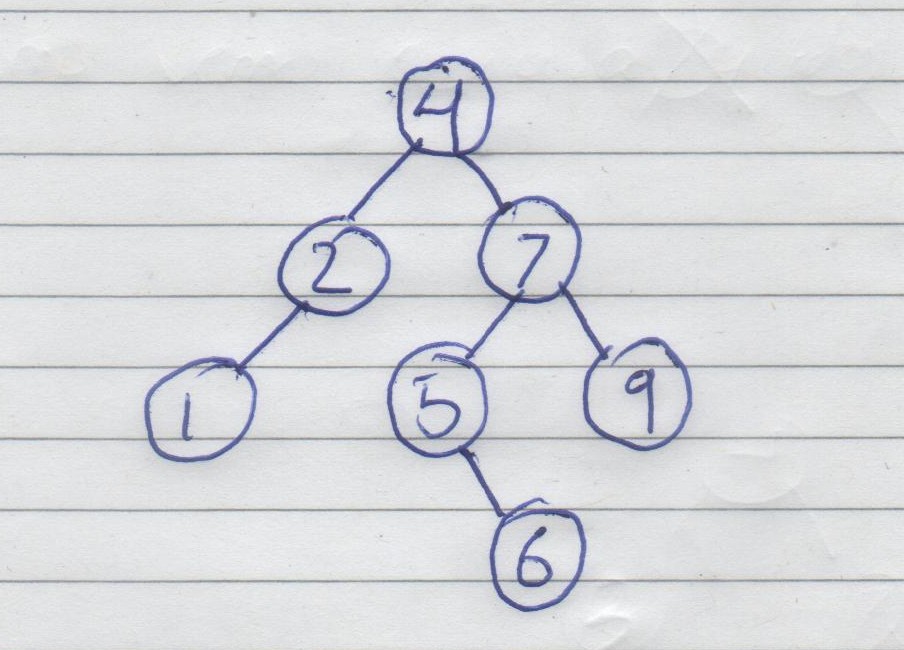 4
2 7
1 5 9
6